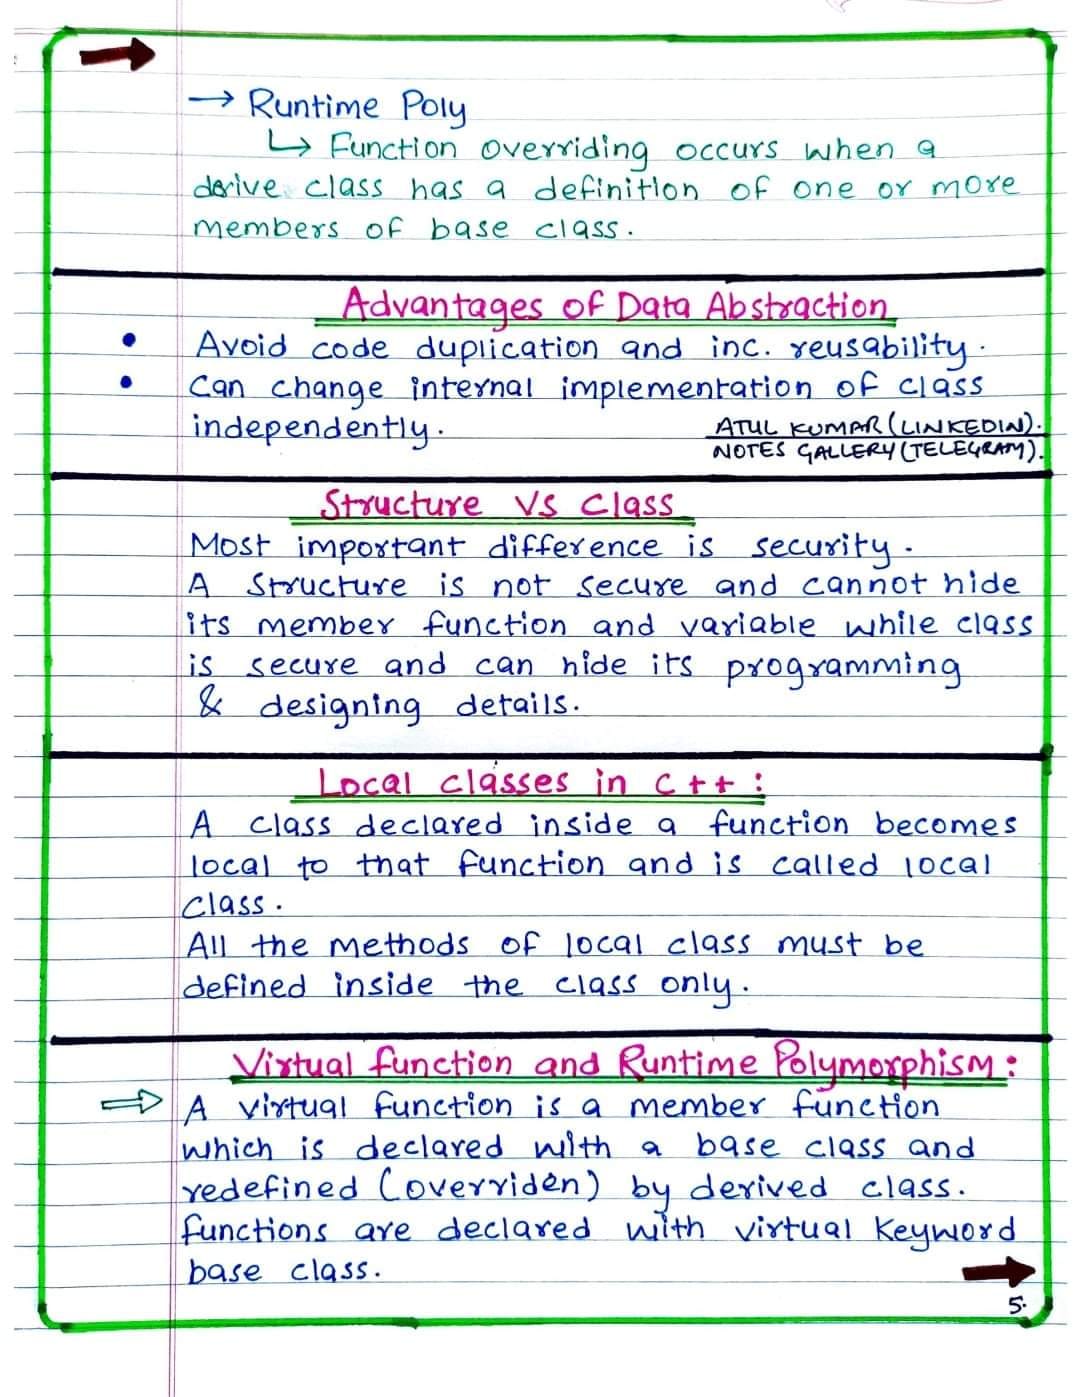 → Runtime Poly
↳ Function overriding occurs when a
derive class has a definition of one or more
members of base class.
Advantages of Data Abstraction
• Avoid code duplication and inc. reusability.
• Can change internal implementation of class
independently.
ATUL KUMAR (LINKEDIN).
NOTES GALLERY (TELEGRAM).
Structure Vs Class
Most important difference is security.
A Structure is not secure and cannot hide
its member function and variable while class
is secure and can hide its programming
& designing details.
Local classes in C++:
A class declared inside a function becomes
local to that function and is called local
class.
All the methods of local class must be
defined inside the class only.
Virtual function and Runtime Polymorphism:
⇒ A virtual function is a member function
which is declared with a base class and
redefined (overriden) by derived class.
functions are declared with virtual Keyword
base class.
5.